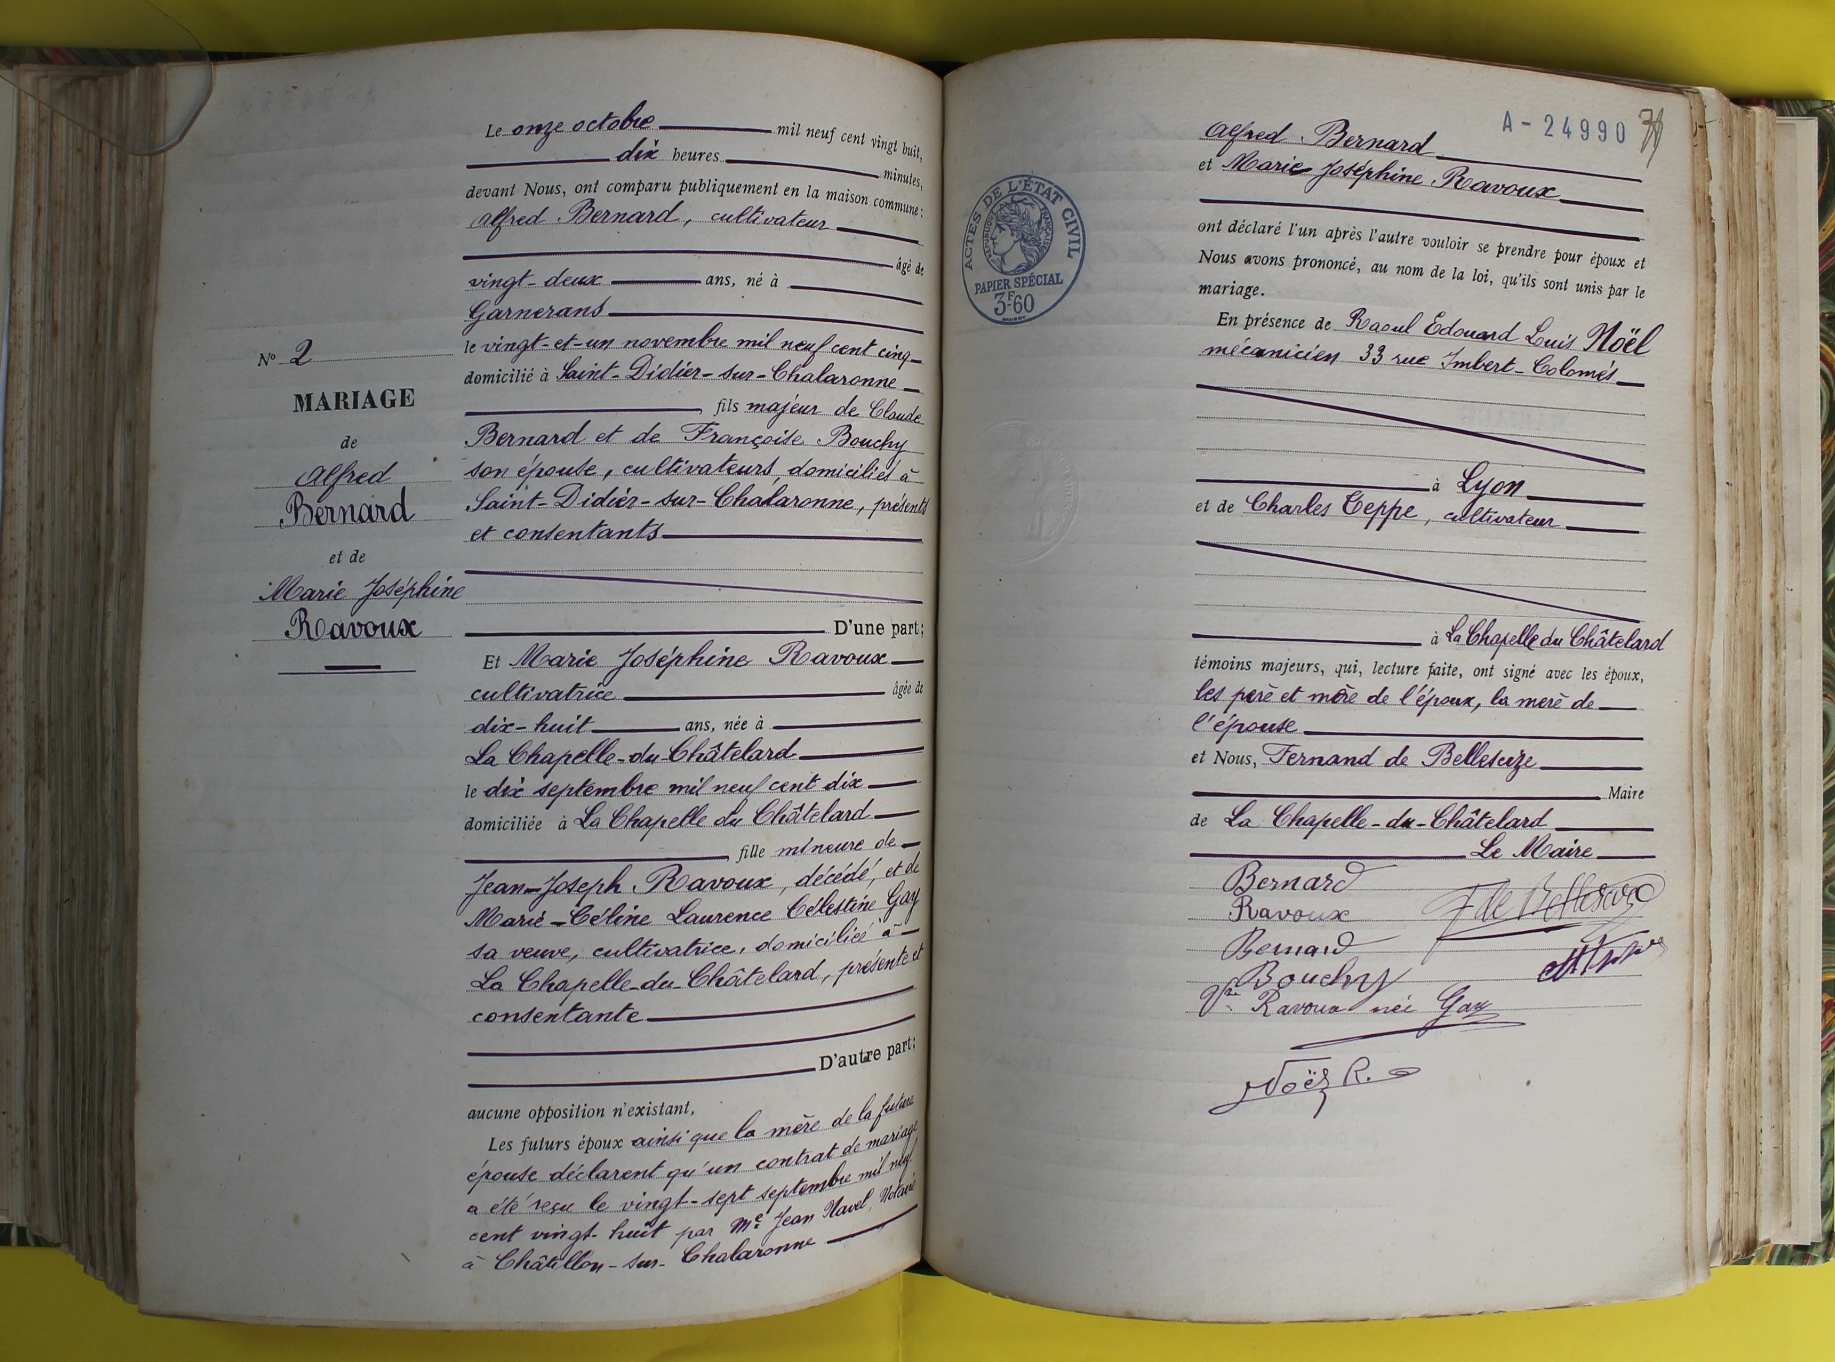 Le onze octobre mil neuf cent vingt huit,
dix heures minutes,
devant Nous, ont comparu publiquement en la maison commune :
Alfred Bernard, cultivateur
âgé de
vingt-deux ans, né à
Garnerans
le vingt-et-un novembre mil neuf cent cinq
domicilié à Saint-Didier-sur-Chalaronne
fils majeur de Claude
Bernard et de Françoise Bouchy
son épouse, cultivateurs, domiciliés à
Saint-Didier-sur-Chalaronne, présents
et consentants
D'une part ;
Et Marie Joséphine Ravoux
cultivatrice âgée de
dix-huit ans, née à
La Chapelle-du-Châtelard
le dix septembre mil neuf cent dix
domiciliée à La Chapelle du Châtelard
fille mineure de
Jean-Joseph Ravoux, décédé, et de
Marie-Céline Laurence Célestine Gay
sa veuve, cultivatrice, domiciliée à
La Chapelle-du-Châtelard, présente et
consentante
D'autre part ;
aucune opposition n'existant,
Les futurs époux ainsi que la mère de la future
épouse déclarent qu'un contrat de mariage
a été reçu le vingt-sept septembre mil neuf
cent vingt-huit par Me Jean Navel, Notaire
à Châtillon-sur-Chalaronne
N° 2
MARIAGE
de
Alfred
Bernard
et de
Marie Joséphine
Ravoux
A-24990
ACTES DE L'ÉTAT CIVIL
RÉPUBLIQUE FRANÇAISE
PAPIER SPÉCIAL
3F60
Alfred Bernard
et Marie Joséphine Ravoux
ont déclaré l'un après l'autre vouloir se prendre pour époux et
Nous avons prononcé, au nom de la loi, qu'ils sont unis par le
mariage.
En présence de Raoul Edouard Louis Noël
mécanicien 33 rue Imbert-Colomès
à Lyon
et de Charles Teppe, cultivateur
à La Chapelle du Châtelard
témoins majeurs, qui, lecture faite, ont signé avec les époux,
les père et mère de l'époux, la mère de
l'épouse
et Nous, Fernand de Bellescize
Maire
de La Chapelle-du-Châtelard
Le Maire
Bernard
F de Bellescize
Ravoux
Bernard
Bouchy
Vve Ravoux née Gay
Noël R.